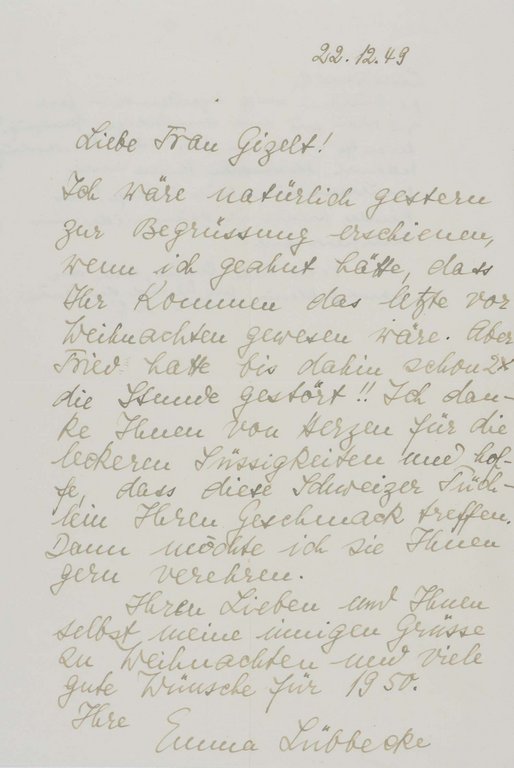 22.12.49
Liebe Frau Gizelt!
Ich wäre natürlich gestern
zur Begrüssung erschienen,
wenn ich geahnt hätte, dass
Ihr Kommen das letzte vor
Weihnachten gewesen wäre. Aber
Fried hatte bis dahin schon 2x
die Stunde gestört!! Ich dan-
ke Ihnen von Herzen für die
leckeren Süssigkeiten und hof-
fe, dass diese Schweizer Tüch-
lein Ihren Geschmack treffen.
Dann möchte ich sie Ihnen
gern verehren.
Ihren Lieben und Ihnen
selbst meine innigen Grüsse
zu Weihnachten und viele
gute Wünsche für 1950.
Ihre
Emma Lübbecke